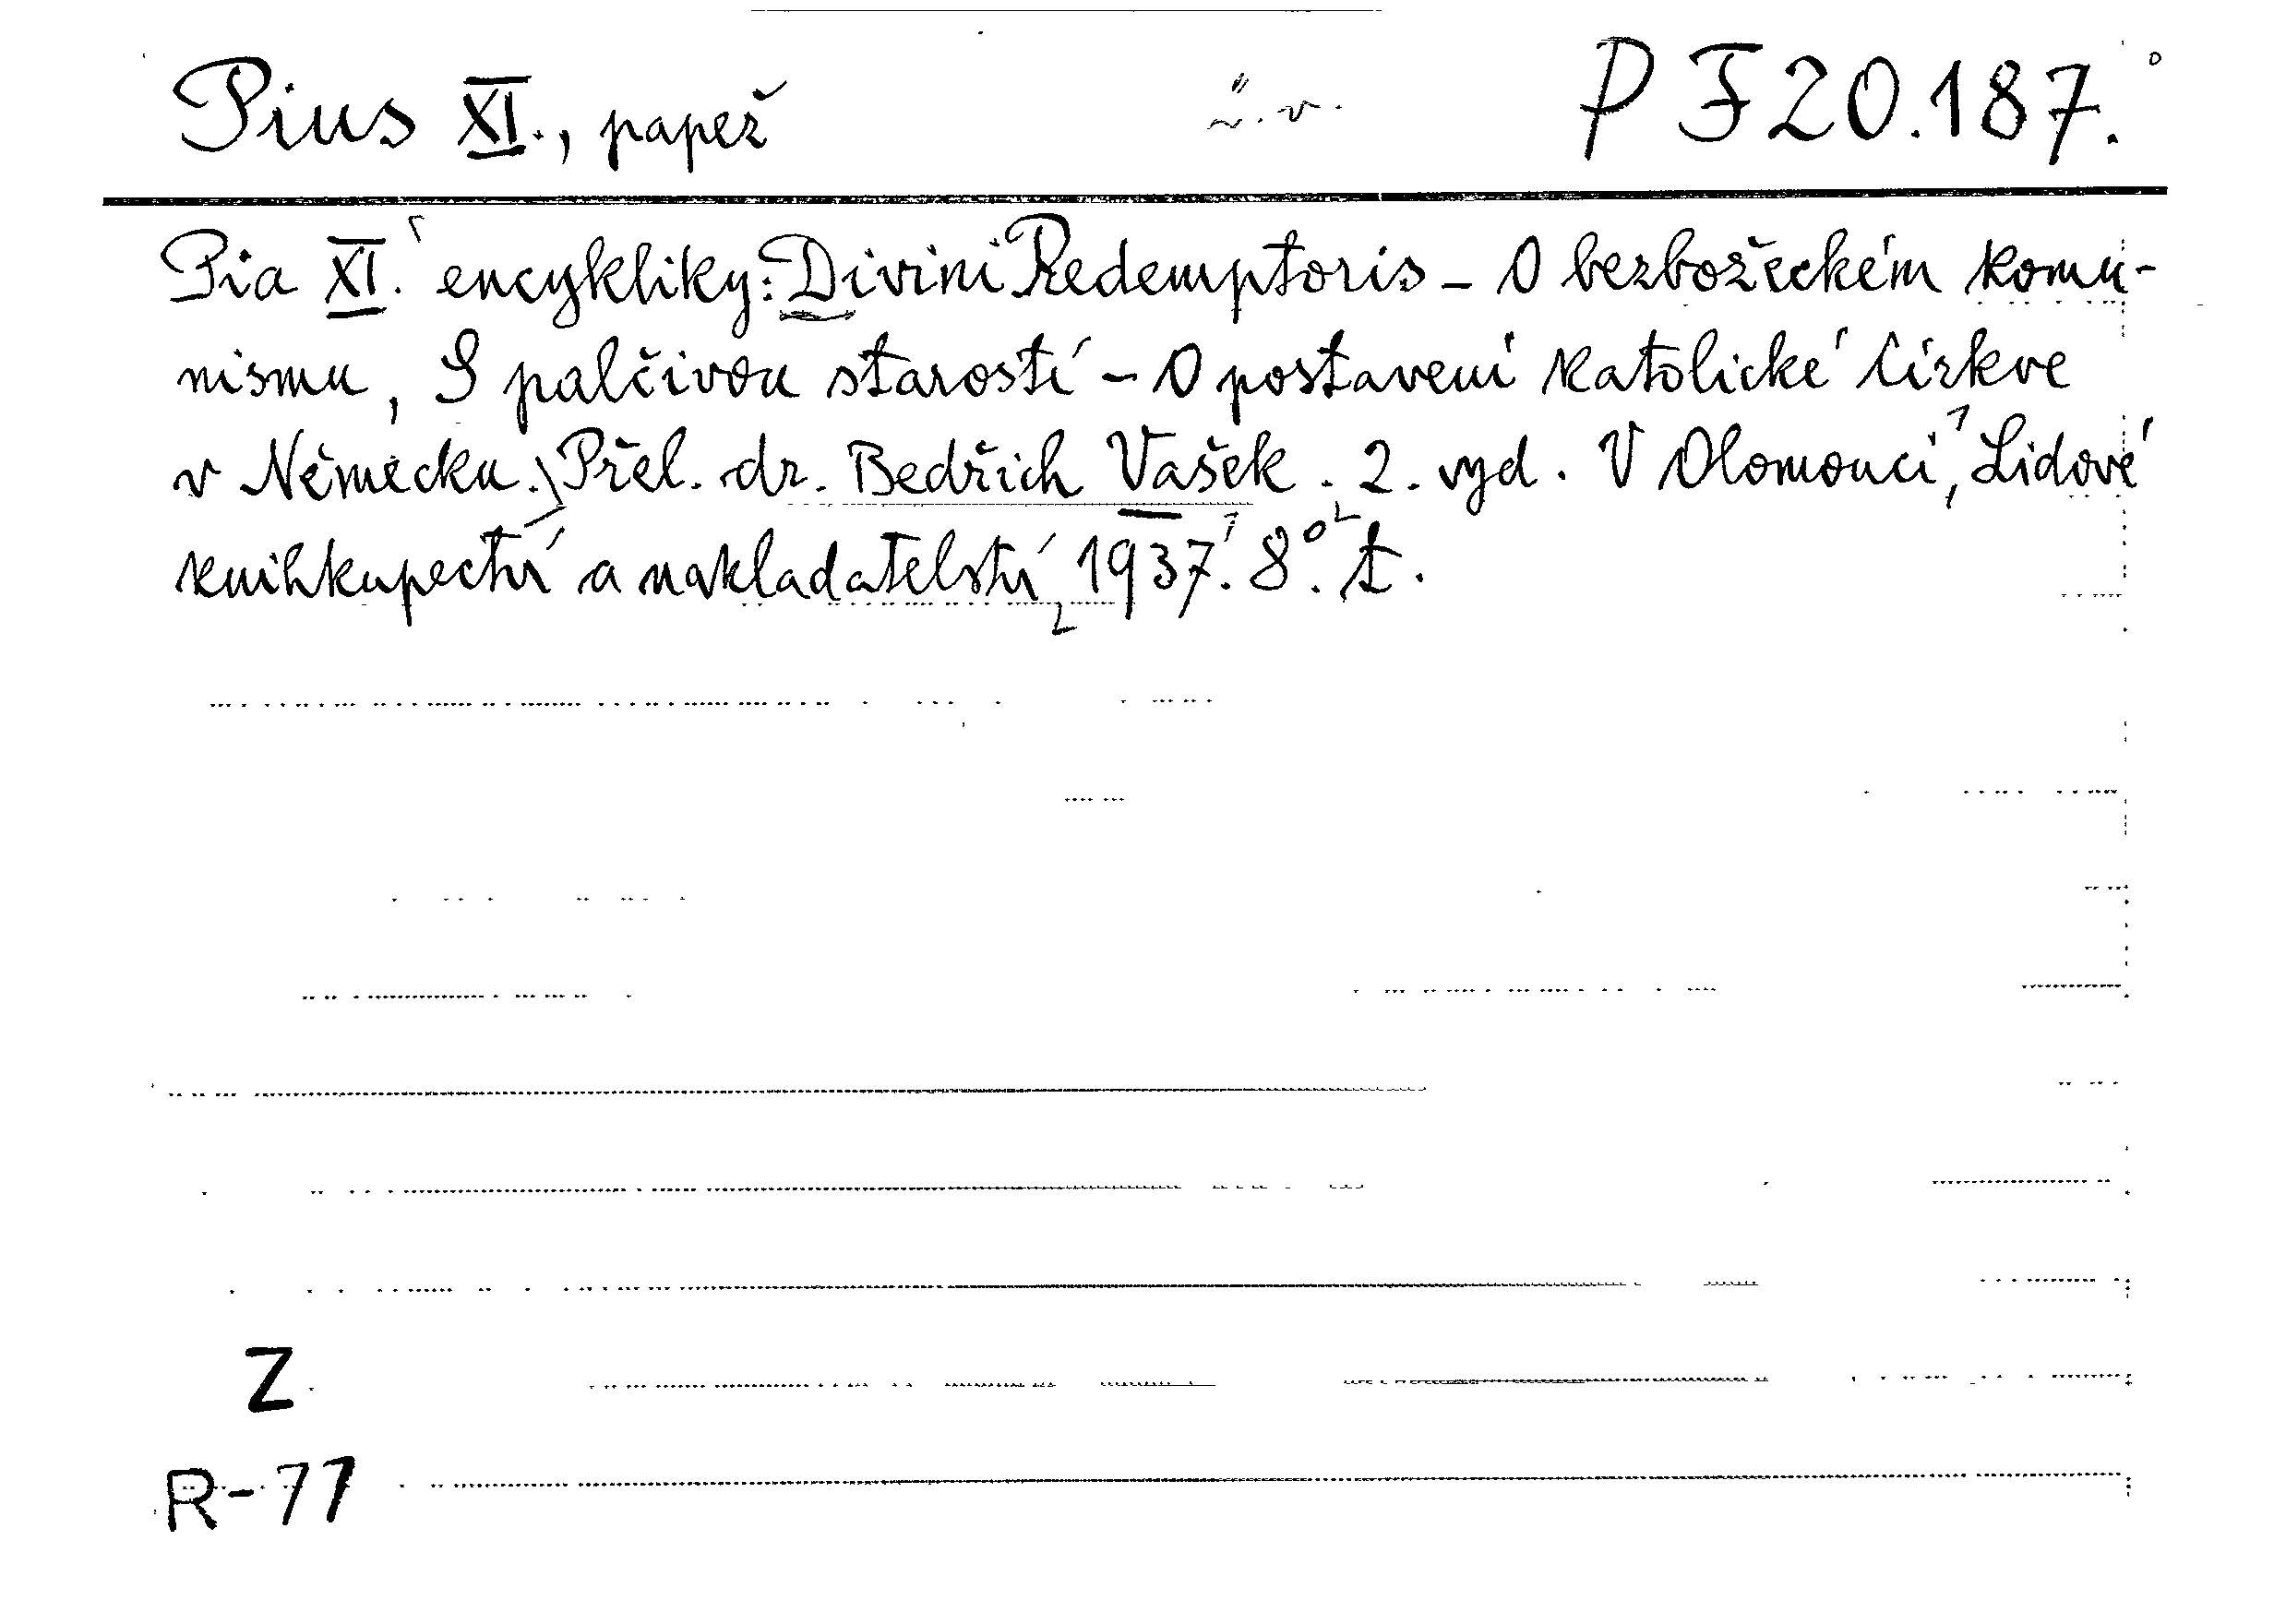 Pius XI., papež P F 20.187.
Pia XI. encykliky: Divini Redemptoris - O bezbožeckém komu-
nismu, S palčivou starostí - O postavení katolické církve
v Německu. Přel. dr. Bedřich Vašek. 2. vyd. V Olomouci, Lidové
knihkupectví a nakladatelství 1937. 8°. t.
Z
R-77